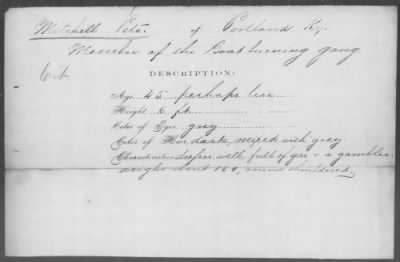 Mitchell Pete. of Portland Ky.
Member of the Boat burning gang.
Cit
DESCRIPTION:
Age, 45 perhaps less
Height, 6 ft.
Color of Eyes, gray
Color of Hair, dark, mixed with gray.
Characteristics dresses well, full of gas & a gambler
weighs about 160, round shouldered.